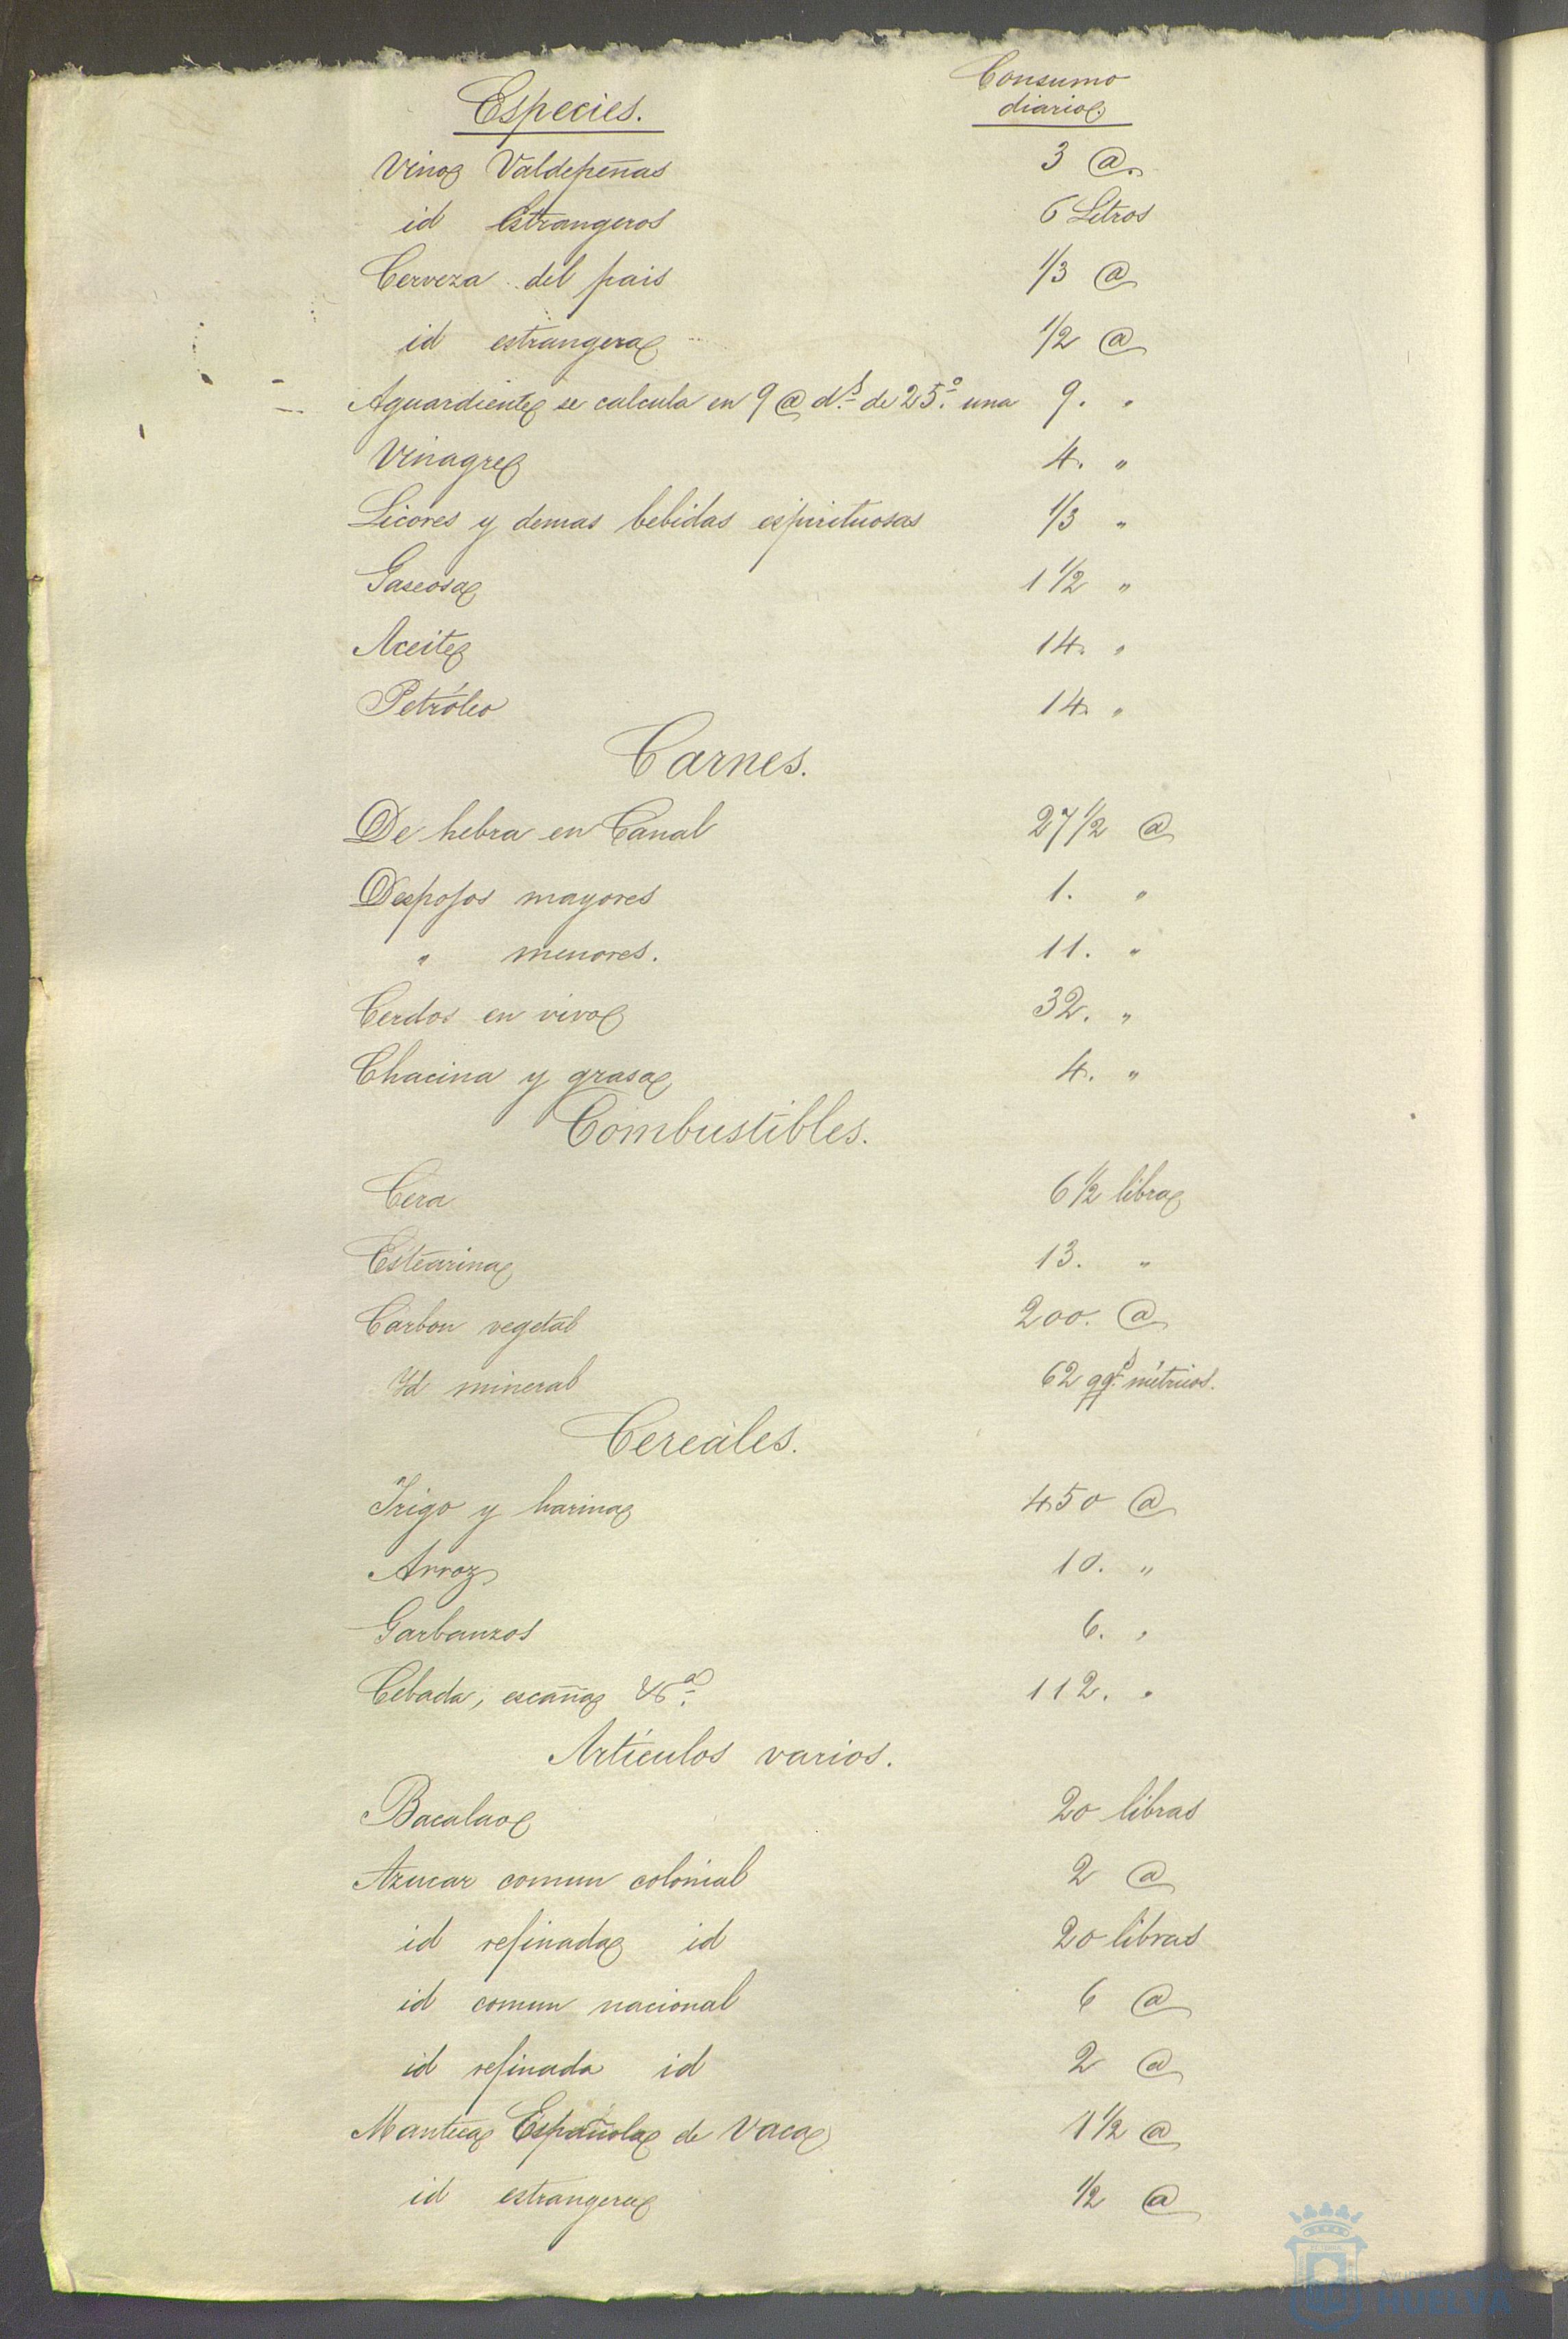 Especies. Consumo
diario
Vino Valdepeñas 3 @.
id Estrangeros 6 Litros
Cerveza del pais 1/3 @
id estrangera 1/2 @
Aguardiente se calcula en 9 @ d.s de 25.º una 9. "
Vinagre 4. "
Licores y demas bebidas espirituosas 1/3 "
Gaseosa 1 1/2 "
Aceite 14. "
Petróleo 14. "
Carnes.
De hebra en Canal 27 1/2 @
Despojos mayores 1. "
" menores. 11. "
Cerdos en vivo 32. "
Chacina y grasa 4. "
Combustibles.
Cera 6 1/2 libra
Estearina 13. "
Carbon vegetal 200. @
Id mineral 62 qq.s métricos.
Cereales.
Trigo y harina 450 @
Arroz 10. "
Garbanzos 6. "
Cebada, escaña &.a 112. "
Artículos varios.
Bacalao 20 libras
Azucar comun colonial 2 @
id refinada id 20 libras
id comun nacional 6 @
id refinada id 2 @
Manteca Española de Vaca 1 1/2 @
id estrangera 1/2 @
HUELVA